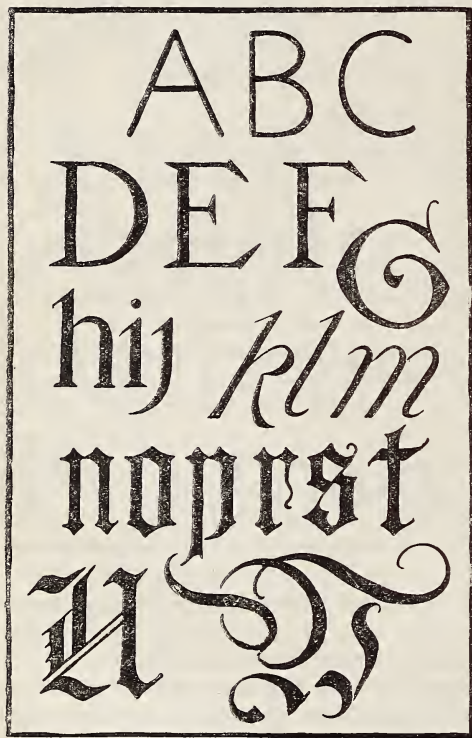 ABC
DEFG
hij klm
noprst
U